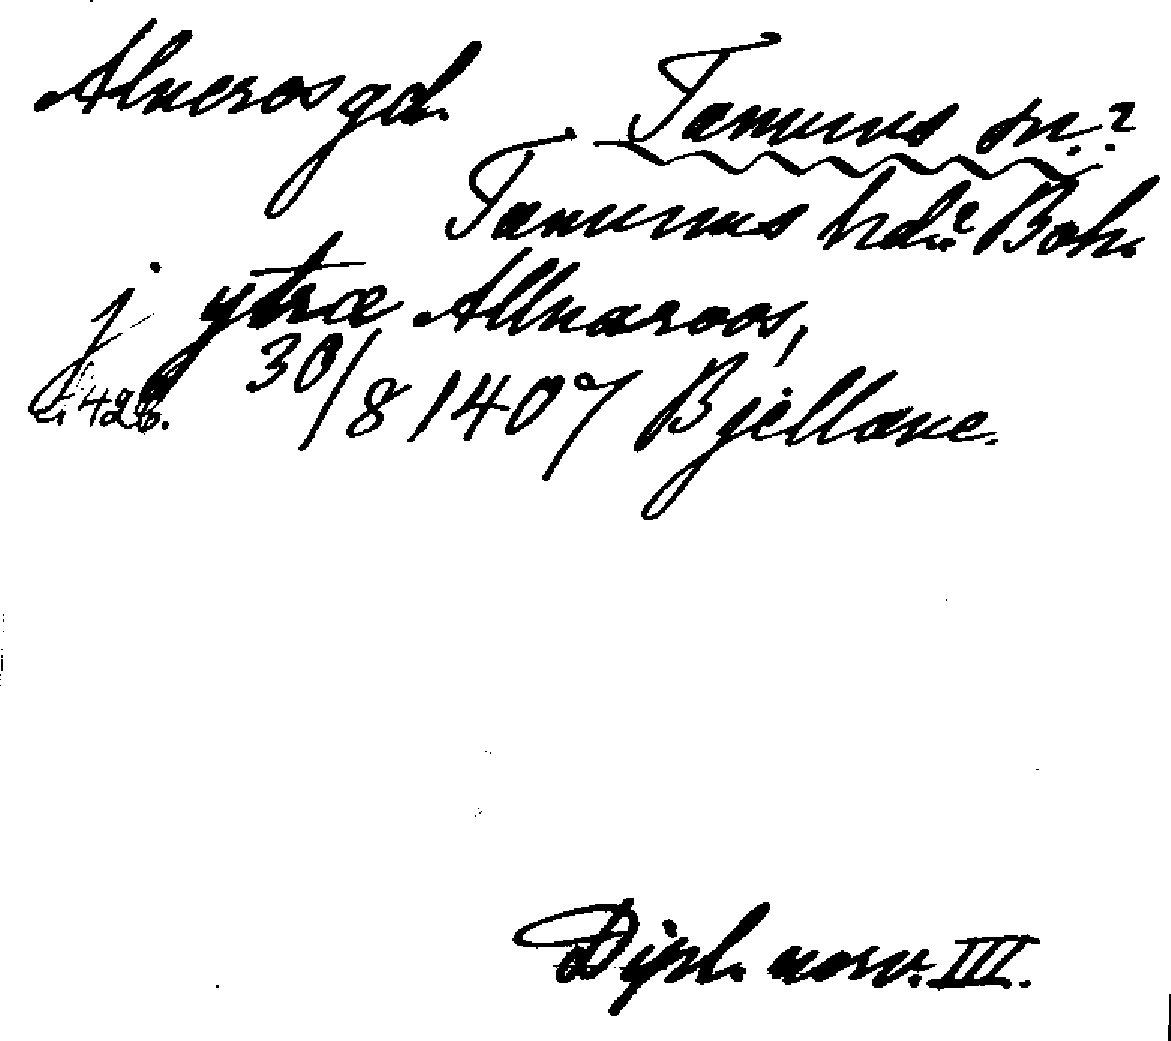 Alneros gd. Tanums sn.?
Tanums hd.? Boh.
j ytræ Allnaroos,
s. 428. 30/8 1407 Bjellane.
Dipl. norv. III.